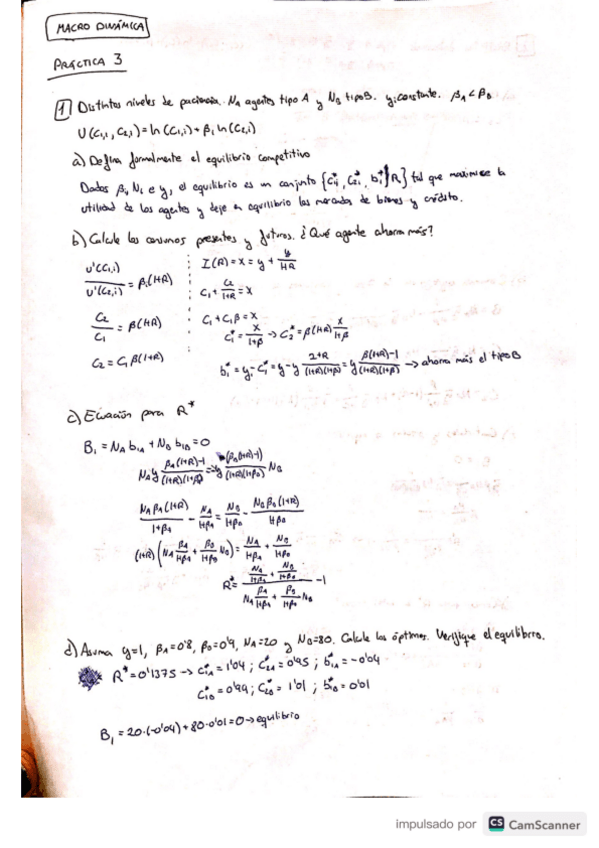 MACRO DINÁMICA
PRÁCTICA 3
1 Distintos niveles de paciencia. NA agentes tipo A y NB tipo B. y: constante. βA < βB
U(C1,i, C2,i) = ln(C1,i) + βi ln(C2,i)
a) Defina formalmente el equilibrio competitivo
Dados β, Ni e y, el equilibrio es un conjunto {C1i*, C2i*, bi*, R} tal que maximice la
utilidad de los agentes y deje en equilibrio los mercados de bienes y crédito.
b) Calcule los consumos presentes y futuros. ¿Qué agente ahorra más?
U'(C1,i)/U'(C2,i) = βi(1+R)
I(R) = x = y + y/(1+R)
C1 + C2/(1+R) = x
C2/C1 = β(1+R)
C1 + C1β = x
C1* = x/(1+β) → C2* = β(1+R) x/(1+β)
C2 = C1 β(1+R)
bi* = yi - C1* = y - y (2+R)/((1+R)(1+β)) = y (β(1+R)-1)/((1+R)(1+β)) → ahorra más el tipo B
c) Ecuación para R*
B1 = NA b1A + NB b1B = 0
NA y (βA(1+R)-1)/((1+R)(1+βA)) = -y (βB(1+R)-1)/((1+R)(1+βB)) NB
NA βA(1+R)/(1+βA) - NA/(1+βA) = NB/(1+βB) - NB βB(1+R)/(1+βB)
(1+R)(NA βA/(1+βA) + βB/(1+βB) NB) = NA/(1+βA) + NB/(1+βB)
R* = (NA/(1+βA) + NB/(1+βB))/(NA βA/(1+βA) + βB/(1+βB) NB) - 1
d) Asuma y=1, βA=0'8, βB=0'9, NA=20 y NB=80. Calcule los óptimos. Verifique el equilibrio.
R* = 0'1375 → C1A* = 1'04; C2A* = 0'95; b1A* = -0'04
C1B* = 0'99; C2B* = 1'01; b1B* = 0'01
B1 = 20·(-0'04) + 80·0'01 = 0 → equilibrio
impulsado por CS CamScanner